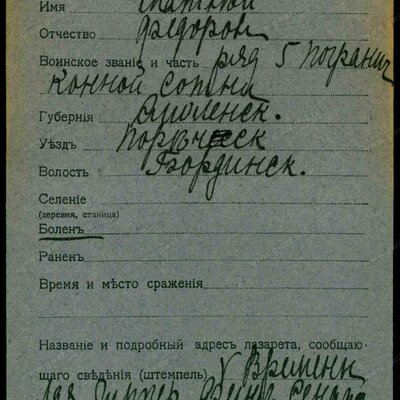 Имя
Отчество Федоров
Воинское званіе и часть ряд 5 погранич
конной сотни
Губернія Смоленск.
Уѣздъ Порѣчск
Волость Бординск.
Селеніе
(деревня, станица)
Боленъ
Раненъ
Время и мѣсто сраженія
Названіе и подробный адресъ лазарета, сообщаю-
щаго свѣдѣнія (штемпель) V Временн